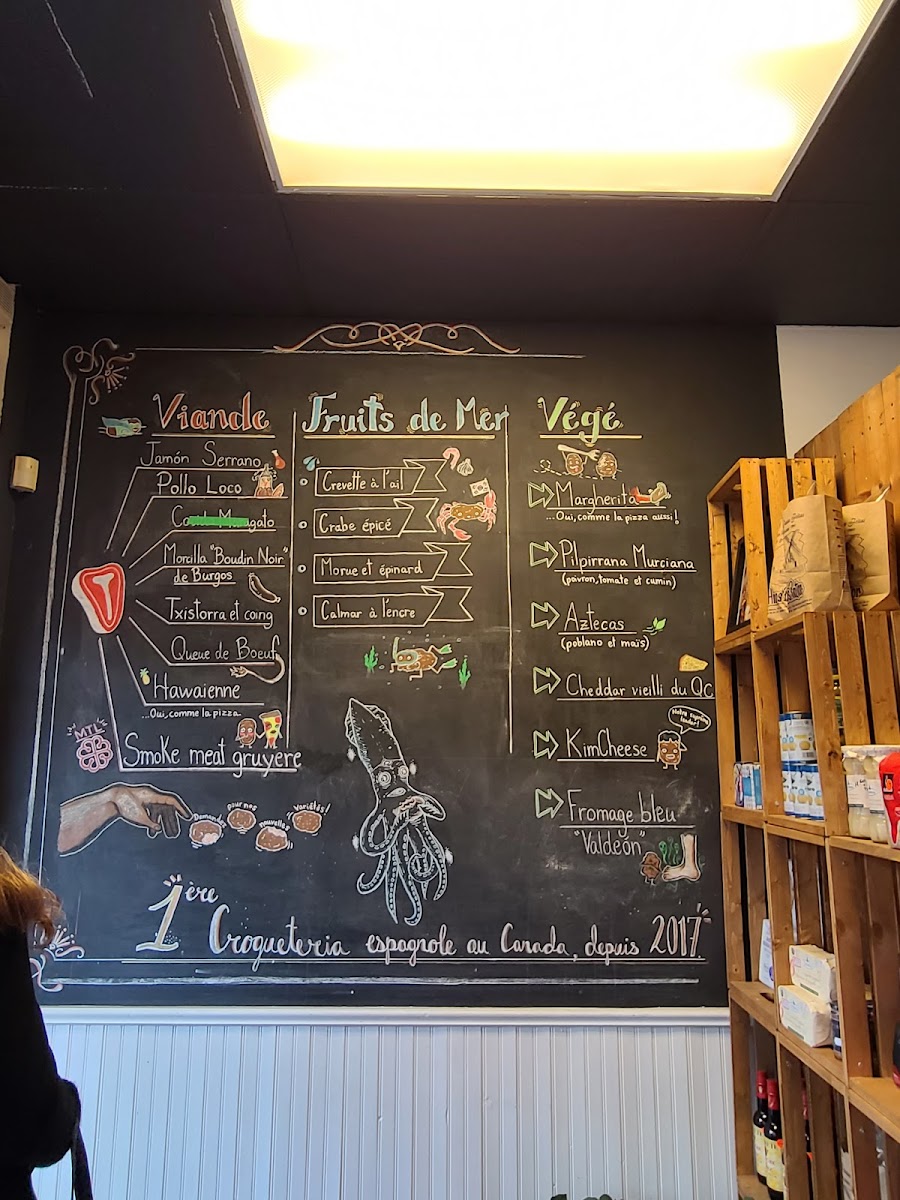 Viande
Jamón Serrano
Pollo Loco
Morcilla "Boudin Noir"
de Burgos
Txistorra et coing
Queue de Boeuf
Hawaienne
...Oui, comme la pizza
MTL
Smoke meat gruyere
Demandez
pour nos
nouvelles
Variétés!
Fruits de Mer
Crevette à l'ail
Crabe épicé
Morue et épinard
Calmar à l'encre
Végé
Margherita
...Oui, comme la pizza aussi!
Pilpirrana Murciana
(poivron, tomate et cumin)
Aztecas
(poblano et maïs)
Cheddar vieilli du QC
KimCheese
Fromage bleu
"Valdeón"
1ère Croqueteria espagnole au Canada, depuis 2017